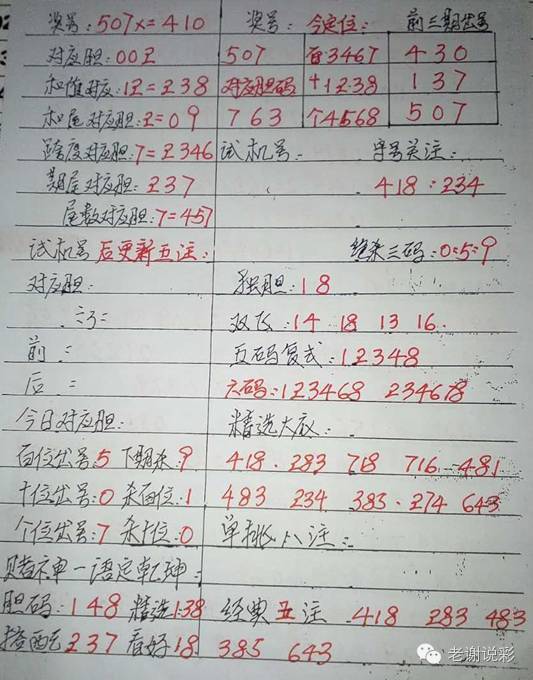 奖号:507x=410 奖号: 今定位: 前三期出号
对应胆:002 507 百3467 430
和值对应:12=238 对应胆码 十1238 137
和尾对应胆:2=09 763 个4568 507
跨度对应胆:7=2346 试机号: 字号关注:
期尾对应胆:237 418:234
尾数对应胆:7=457
试机号后更新五注: 绝杀三码:0:5:9
对应胆: 独胆:18
双飞:14 18 13 16
前: 五码复式:12348
后: 六码:123468 234678
今日对应胆: 精选大底:
百位出号:5 下期杀:9 418.283 718 716 481
十位出号:0 杀百位:1 483 234 383.274 643
个位出号:7 杀十位:0 单挑八注:
赌神一语定乾坤:
胆码:148 精选138 经典五注.418 283 483
搭配237 看好18 385 643
老谢说彩